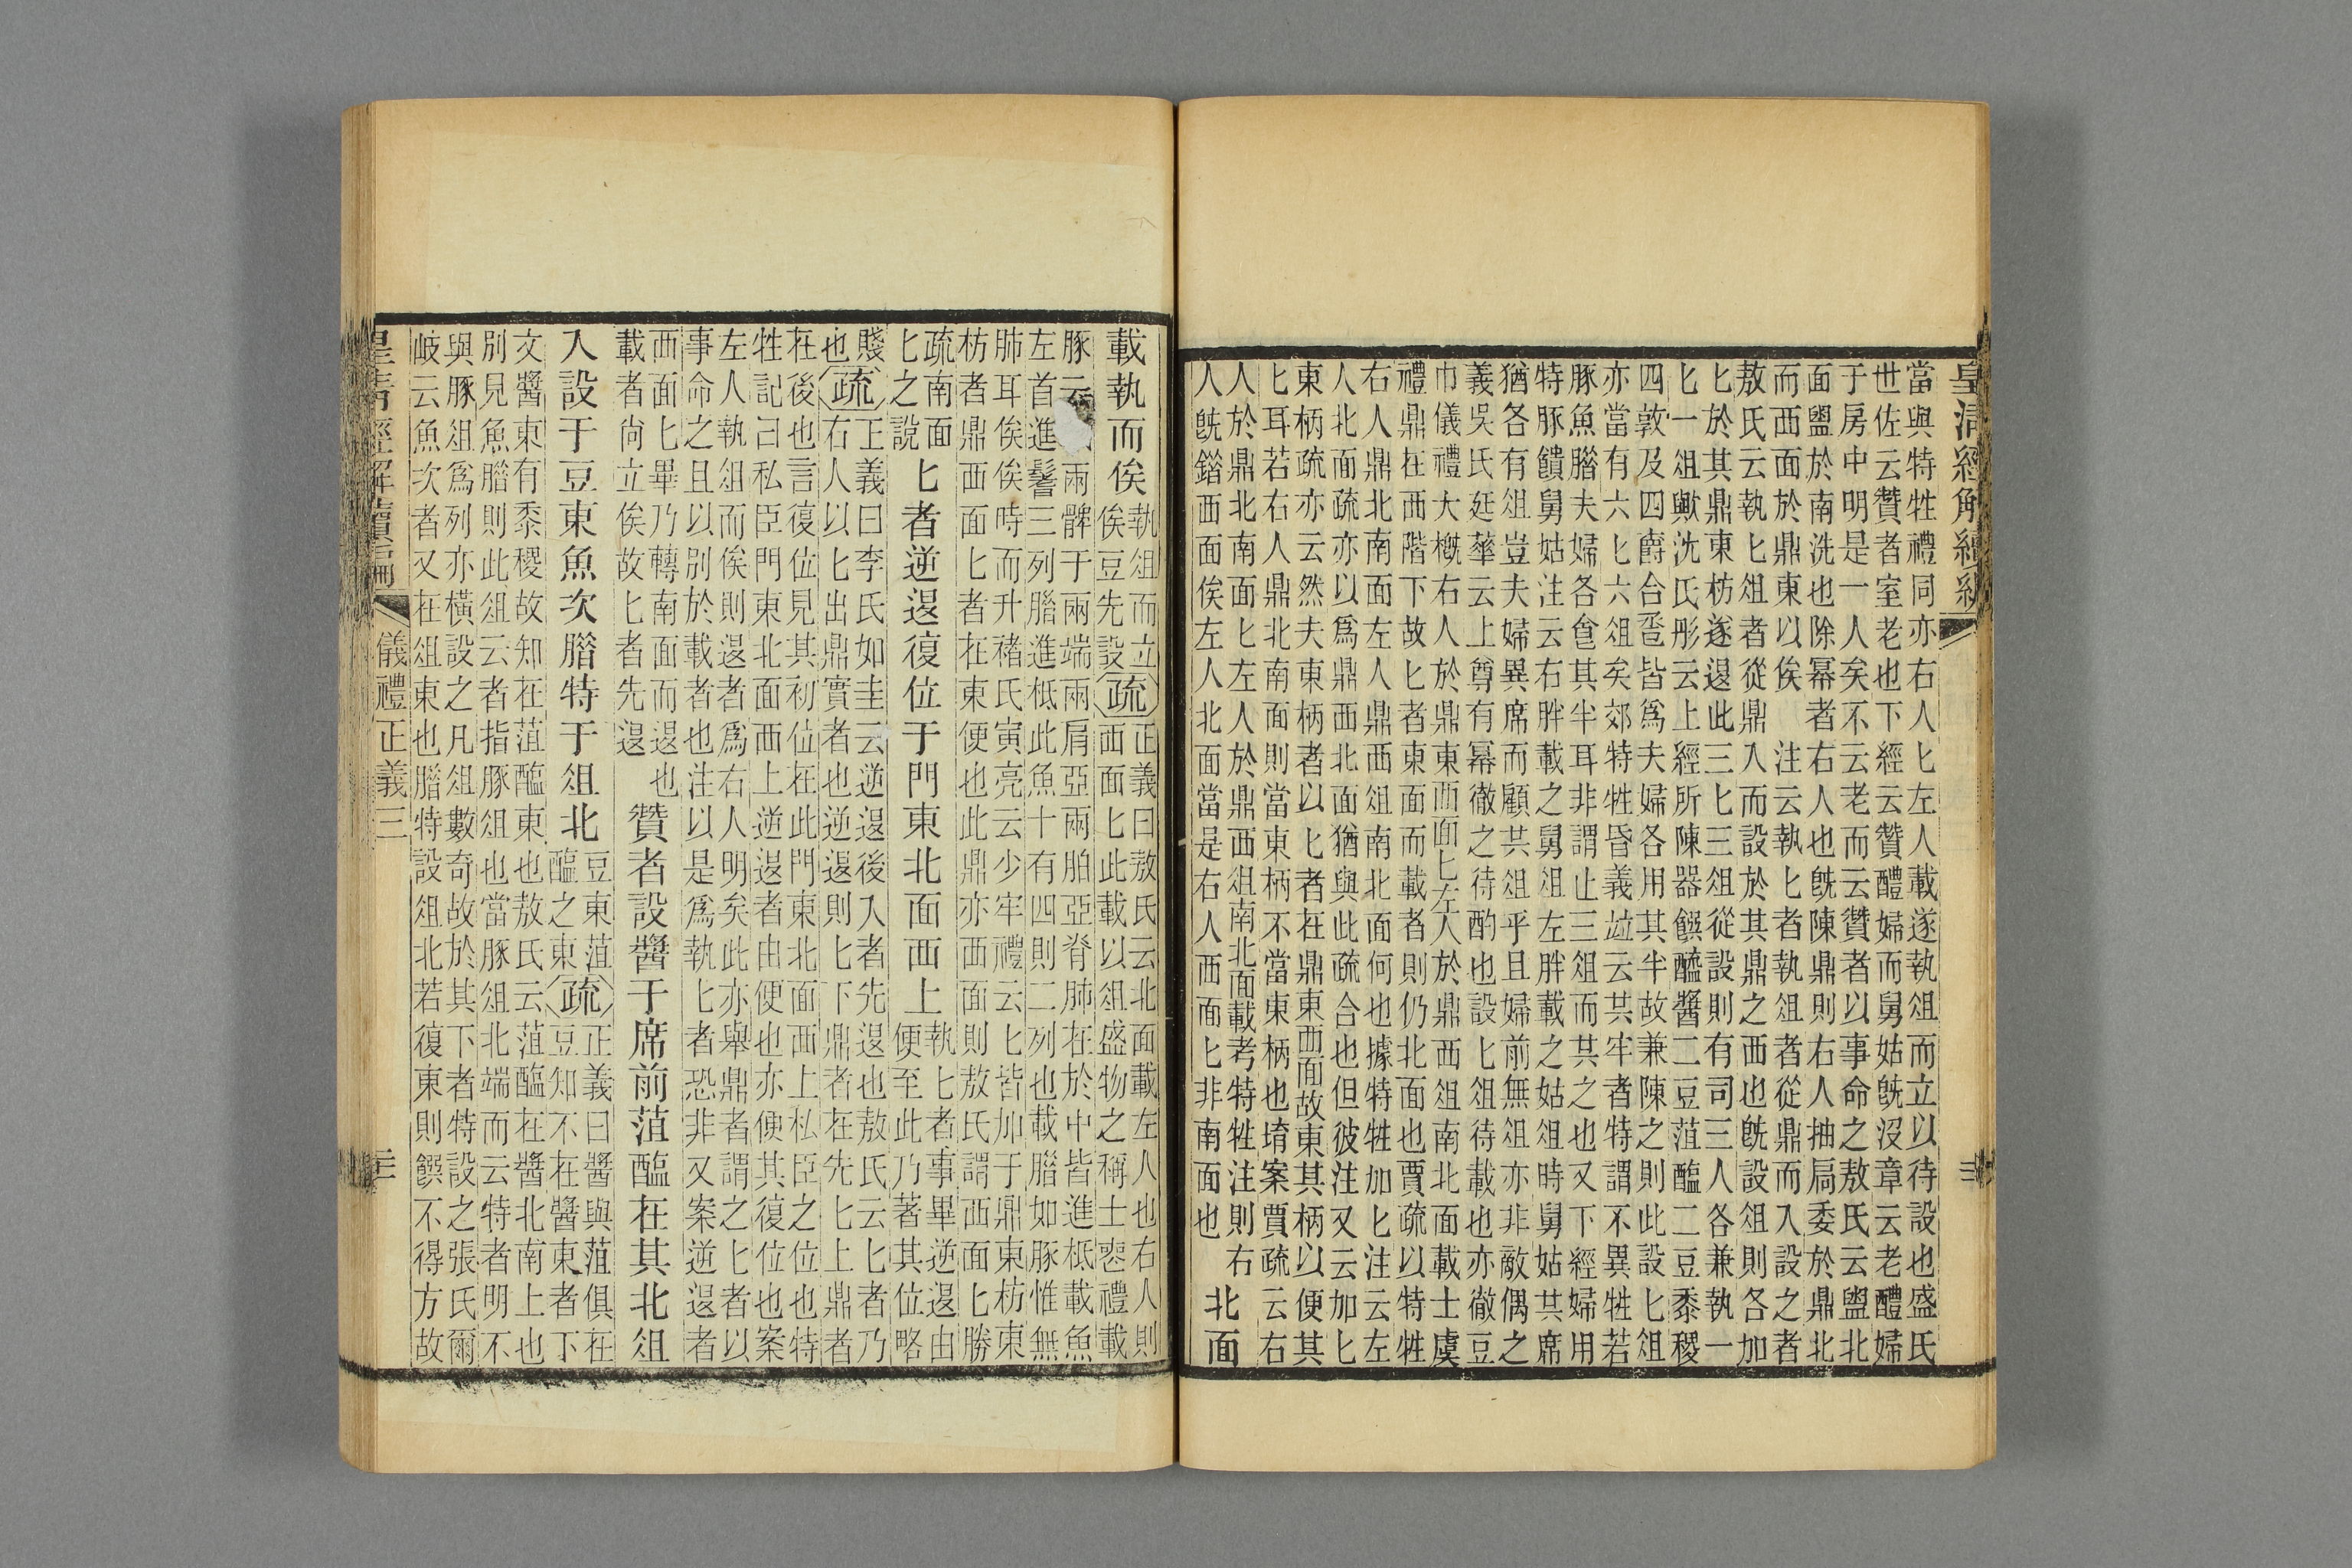 皇清經解續編
當與特牲禮同亦右人匕左人載遂執俎而立以待設也盛氏
世佐云贊者室老也下經云贊醴婦而舅姑旣沒章云老醴婦
于房中明是一人矣不云老而云贊者以事命之敖氏云盥北
面盥於南洗也除冪者右人也旣陳鼎則右人抽扃委於鼎北
而西面於鼎東以俟 注云執匕者執俎者從鼎而入設之者
敖氏云執匕俎者從鼎入而設於其鼎之西也旣設俎則各加
匕於其鼎東枋遂退此三匕三俎從設則有司三人各兼執一
匕一俎歟沈氏彤云上經所陳器饌醯醬二豆菹醢二豆黍稷
四敦及四爵合巹皆爲夫婦各用其半故兼陳之則此設匕俎
亦當有六匕六俎矣郊特牲昏義竝云共牢者特謂不異牲若
豚魚腊夫婦各舍其半耳非謂止三俎而共之也又下經婦用
特豚饋舅姑注云右胖載之舅俎左胖載之姑俎時舅姑共席
猶各有俎豈夫婦異席而顧共俎乎且婦前無俎亦非敵偶之
義吳氏廷華云上尊有冪徹之待酌也設匕俎待載也亦徹豆
巾儀禮大槪右人於鼎東西面匕左人於鼎西俎南北面載士虞
禮鼎在西階下故匕者東面而載者則仍北面也賈疏以特牲
右人鼎北南面左人鼎西俎南北面何也據特牲加匕注云左
人北面疏亦以爲鼎西北面猶與此疏合也但彼注又云加匕
東柄疏亦云然夫東柄者以匕者在鼎東西面故東其柄以便其
匕耳若右人鼎北南面則當東柄不當東柄也堉案賈疏云右
人於鼎北南面匕左人於鼎西俎南北面載考特牲注則右
人旣錯西面俟左人北面當是右人西面匕非南面也
北面
載執而俟
執俎而立
俟豆先設
疏
正義曰敖氏云北面載左人也右人則
西面匕此載以俎盛物之稱士喪禮載
豚云兩髀于兩端兩肩亞兩胉亞脊肺在於中皆進柢載魚
左首進鬐三列腊進柢此魚十有四則二列也載腊如豚惟無
肺耳俟俟時而升褚氏寅亮云少牢禮云匕皆加于鼎東枋東
枋者鼎西面匕者在東便也此鼎亦西面則敖氏謂西面匕勝
疏南面
匕之說
匕者逆退復位于門東北面西上
執匕者事畢逆退由
便至此乃著其位略
賤
也
疏
正義曰李氏如圭云逆退後入者先退也敖氏云匕者乃
右人以匕出鼎實者也逆退則匕下鼎者在先匕上鼎者
在後也言復位見其初位在此門東北面西上私臣之位也特
牲記曰私臣門東北面西上逆退者由便也亦便其復位也案
左人執俎而俟則退者爲右人明矣此亦舉鼎者謂之匕者以
事命之且以別於載者也注以是爲執匕者恐非又案逆退者
西面匕畢乃轉南面而退也
載者尙立俟故匕者先退
贊者設醬于席前菹醢在其北俎
入設于豆東魚次腊特于俎北
豆東菹
醢之東
疏
正義曰醬與菹俱在
豆知不在醬東者下
文醬東有黍稷故知在菹醢東也敖氏云菹醢在醬北南上也
別見魚腊則此俎云者指豚俎也當豚俎北端而云特者明不
與豚俎爲列亦橫設之凡俎數奇故於其下者特設之張氏爾
岐云魚次者又在俎東也腊特設俎北若復東則饌不得方故
皇清經解續編
儀禮正義三